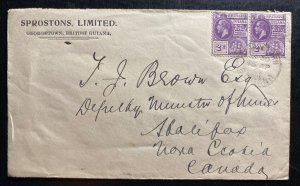 SPROSTONS, LIMITED.
GEORGETOWN, BRITISH GUIANA.
T. J. Brown Esq
Deputy Minister of Mines
Halifax
Nova Scotia
Canada